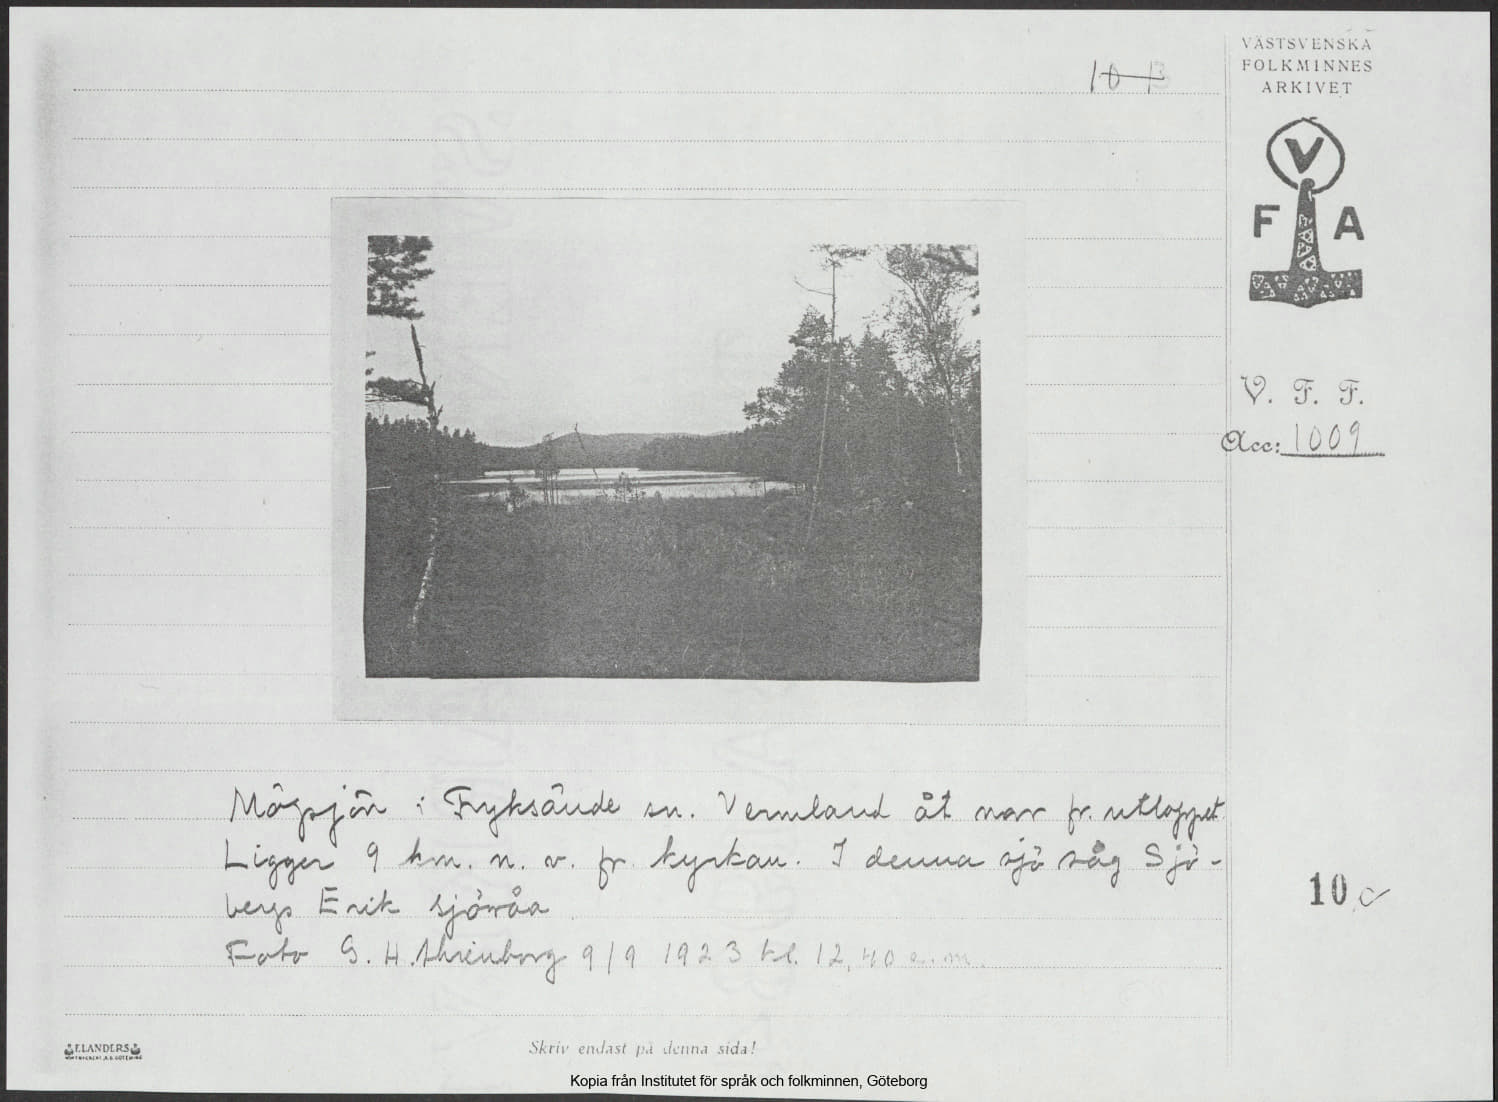 VÄSTSVENSKA
FOLKMINNES
ARKIVET
V
F A
V. F. F.
Acc: 1009
10
Mögsjön i Fryksände sn. Vermland åt norr fr. utloppet.
Ligger 9 km. n. v. fr. kyrkan. I denna sjö såg Sjö-
bergs Erik sjöråa
Foto G. H. 9/9 1923 kl. 12,40 e.m.
10
ELANDERS
Skriv endast på denna sida!
Kopia från Institutet för språk och folkminnen, Göteborg